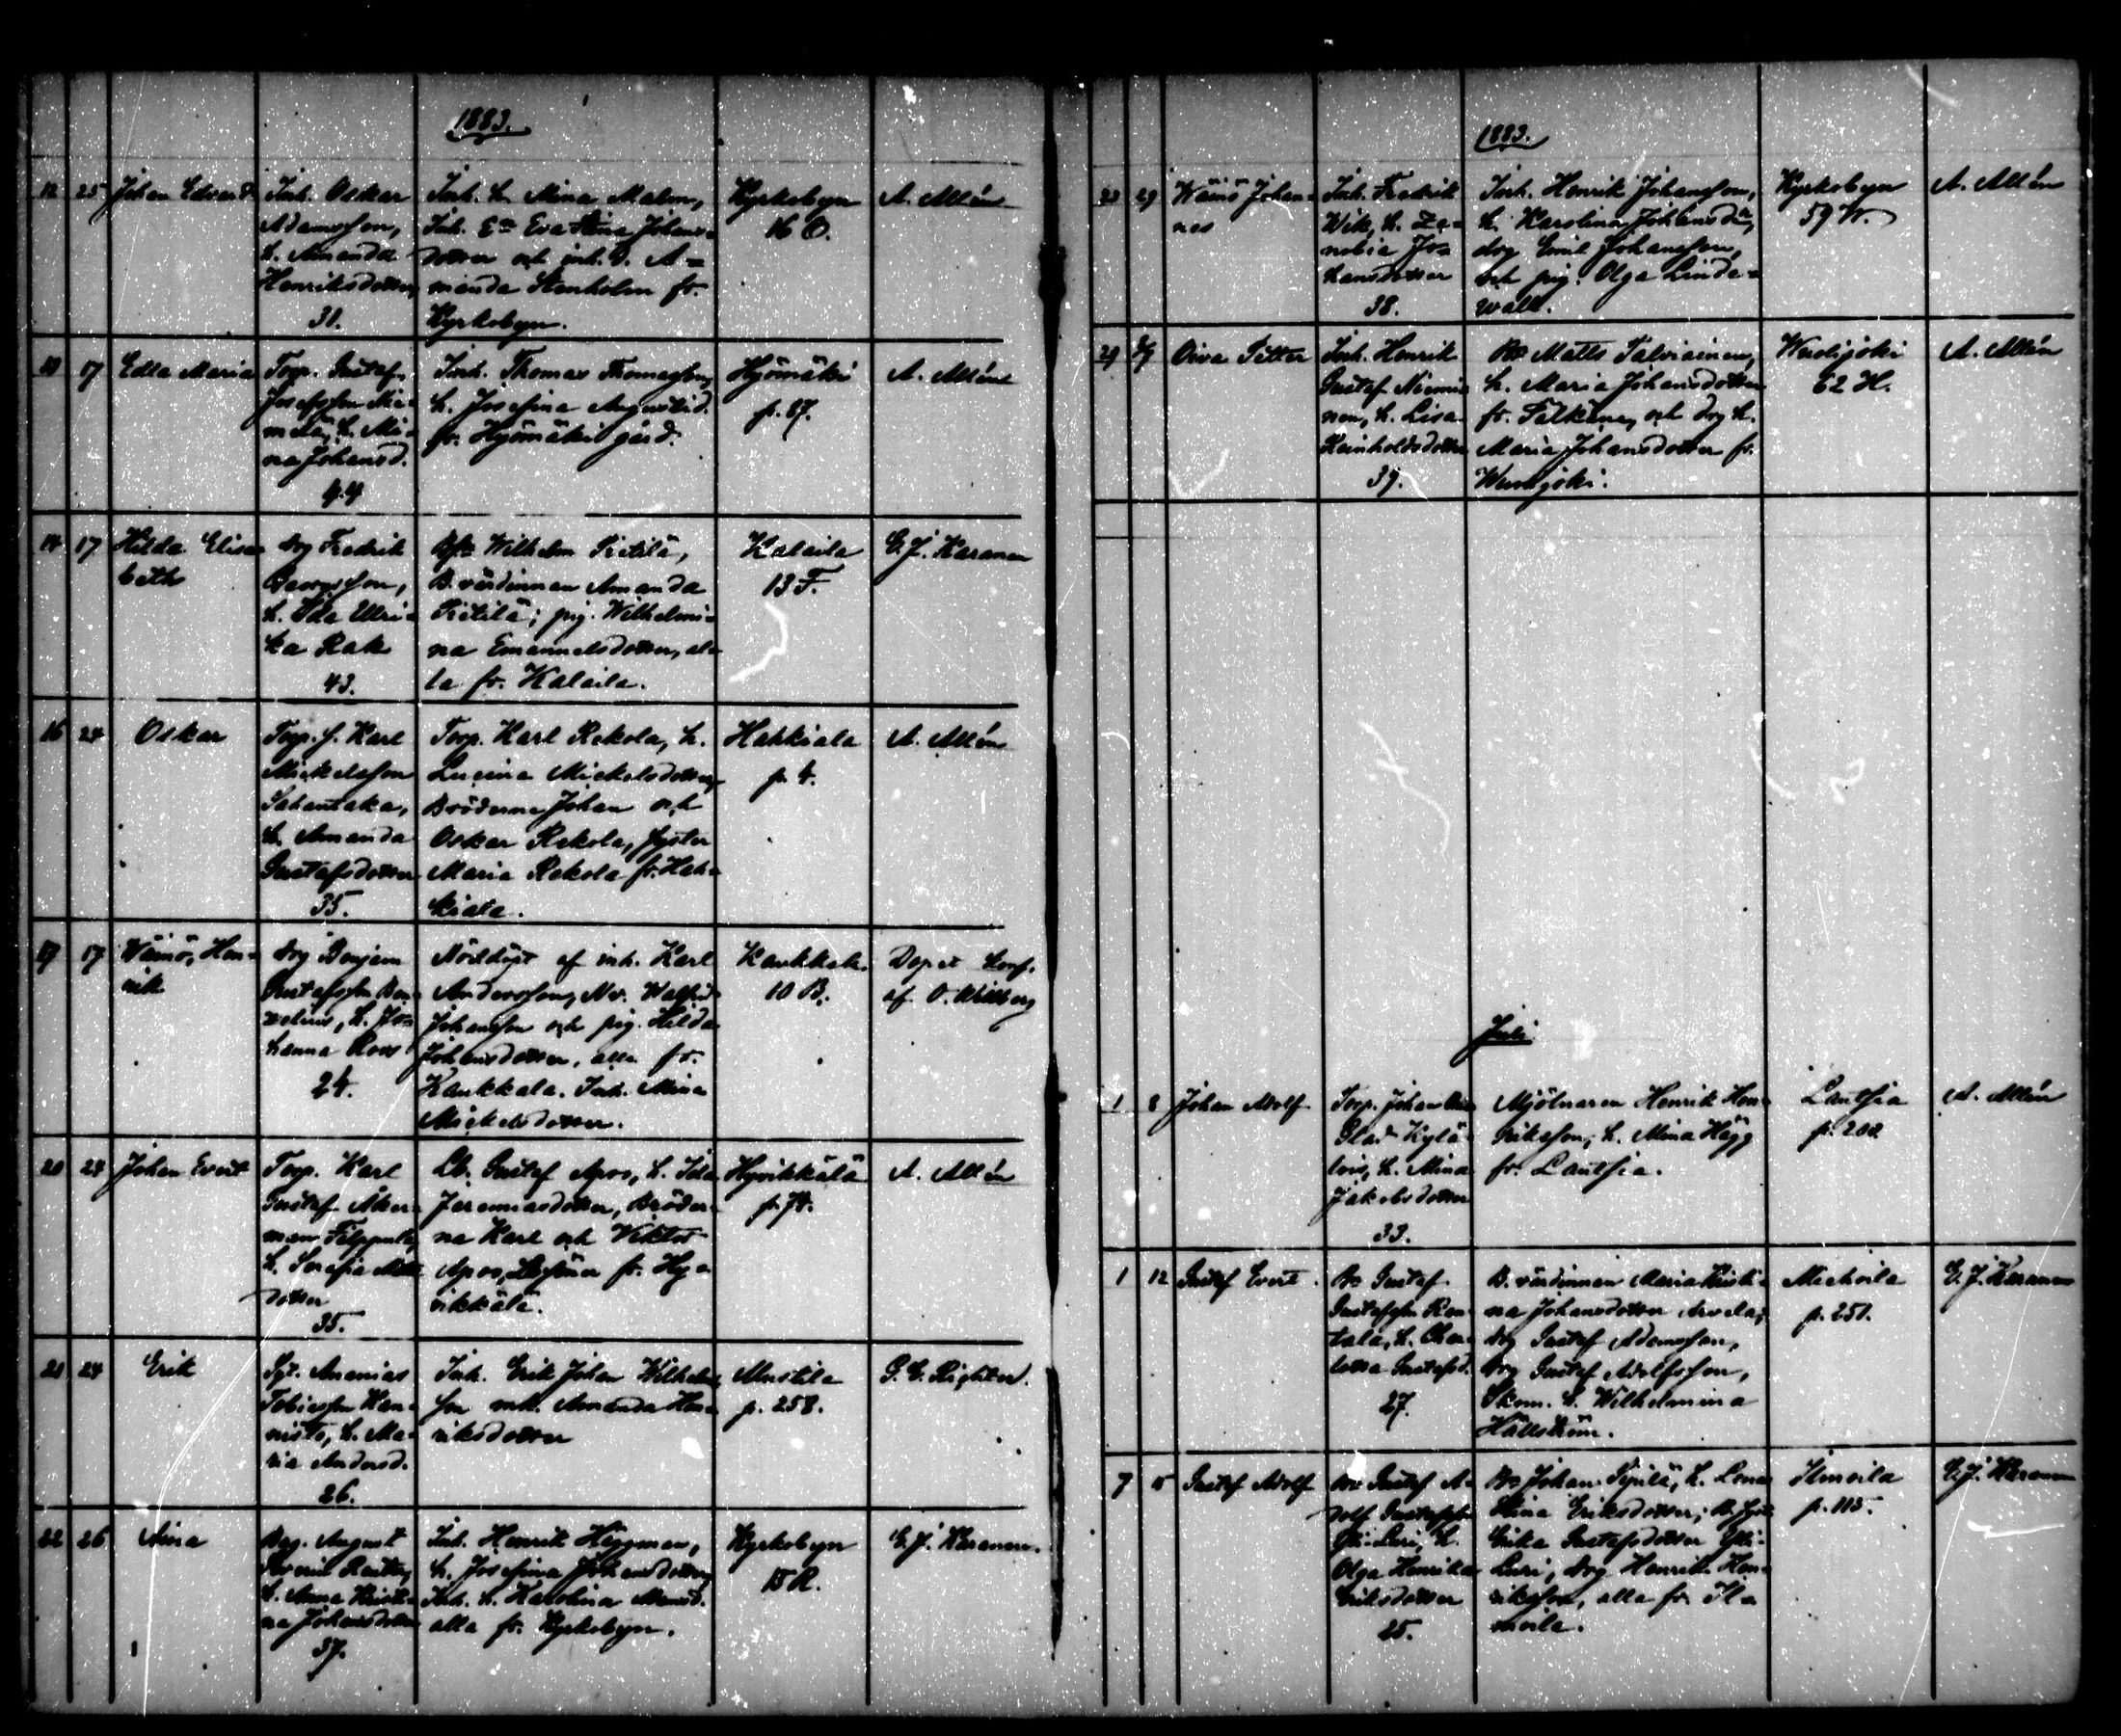 1883.
12 25 Johan Edvard
Inh. Oskar
Adamsson,
h. Amanda
Henriksdotter
31.
Inh. h. Mina Malm,
Inh. Eva Stina Johans-
dotter och inh. d. A-
manda Stenholm fr.
Kyrkobyn.
Kyrkobyn
16 O.
A. Allén
13 17 Edla Maria
Torp. Gustaf
Josefsson Nie-
melä, h. Mi-
na Johansd.
44
Inh. Thomas Thomasson,
h. Josefina Augustid.
fr. Hyömäki gård.
Hyömäki
p. 87.
A. Allén
14 17 Hilda Elisa-
beth
drg Fredrik
h. Ida Ulri-
ka Rak
43.
Wilhelm Pietilä,
B. värdinnan Amanda
Pietilä; pig. Wilhelmi-
na Emanuelsdotter, al-
la fr. Kalaila.
Kalaila
13 F.
G. J. Karanen
16 24 Oskar
Torp. s. Karl
Mickelsson
Sahantaka,
h. Amanda
Gustafsdotter
35.
Torp. Karl Rekola, h.
Lucina Mickelsdotter,
Bröderna Johan och
Oskar Rekola, syster
Maria Rekola fr. Hah-
kiala.
Hahkiala
p. 4.
A. Allén
17 17 Wäinö, Hen-
rik
drg Benjam
Gustafsson
h. Jo-
hanna Roos
24.
Nöddöpt af inh. Karl
Andersson, Nv. Walfrid
Johansson och pig. Hilda
Johansdotter, alla fr.
Kaukkala. Inh. Mina
Mickelsdotter.
Kaukkala
10 B.
Dopet konf.
af O. Wallberg
20 24 Johan Evert
Torp. Karl
Gustaf Åker-
man Filppula,
h. Serafia
dotter
35.
Lb. Gustaf Apos, h. Ida
Jeremiasdotter, Bröder-
na Karl och Viktor
Apos, fr. Hy-
vikkälä.
Hyvikkälä
p. 74.
A. Allén
21 24 Erik
Ananias
Tobiasson Han-
nisto, h. Ma-
ria Andersd.
26.
Inh. Erik Johan Wilhelms-
son m.h. Amanda Hen-
riksdotter
Mustila
p. 258.
22 26 Aina
August
h. Anna Kristi-
na Johansdotter
37.
Inh. Henrik Häggman,
h. Josefina Johansdotter,
Inh. h. Karolina
alla fr. Kyrkobyn.
Kyrkobyn
15 R.
G. J. Karanen.
1883.
23 29 Wäinö Johan-
nes
Inh. Fredrik
Wik, h. Ze-
nobia Jo-
hansdotter
38.
Inh. Henrik Johansson,
h. Karolina Johansd:r,
drg Emil Johansson,
och pig. Olga Linde-
wall.
Kyrkobyn
59 W.
A. Allén
29 Oiva Petter
Inh. Henrik
Gustaf Niemi-
nen, h. Lisa
Reinholdsdotter
39.
Matts Talviainen,
h. Maria Johansdotter
fr. Pälkäne, och drg h.
Maria Johansdotter fr.
Wuolijoki.
Wuolijoki
62 H.
A. Allén
Juli
1 8 Johan Adolf
Torp. Johan
Glad Kylä-
h. Mina
Jakobsdotter
33.
Mjölnaren Henrik Hen-
riksson, h. Mina Hägg
fr. Lautsia.
Lautsia
p. 202
A. Allén
1 12 Gustaf Evert.
Gustaf
Gustafsson Ran-
tala, h. Char-
lotta Gustafsd.
27.
B. värdinnan Maria Kristi-
na Johansdotter
drg Gustaf Adamsson,
drg Gustaf Adolfsson,
Skom. h. Wilhelmina
Hällström.
Miehoila
p. 251.
G. J. Karanen
7 15 Gustaf Adolf
Gustaf A-
dolf Gustafsson
h.
Olga Henrika
Eriksdotter
25.
Johan h. Lena
Stina Eriksdotter;
Erika Gustafsdotter
drg Henrik Hen-
riksson, alla fr. Il-
moila.
Ilmoila
p. 113.
G. J. Karanen